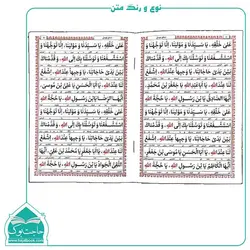 نوع و رنگ متن
عَلَى خَلْقِهِ، يَا سَيِّدَنَا وَ مَوْلَانَا، إِنَّا تَوَجَّهْنَا وَ
اسْتَشْفَعْنَا وَ تَوَسَّلْنَا بِكَ إِلَى اللهِ، وَ قَدَّمْنَاكَ
بَيْنَ يَدَيْ حَاجَاتِنَا، يَا وَجِيهاً عِنْدَ اللهِ، اِشْفَعْ
أَيُّهَا الصَّادِقُ، يَا بْنَ رَسُولِ اللهِ، يَا حُجَّةَ اللهِ
عَلَى خَلْقِهِ، يَا سَيِّدَنَا وَ مَوْلَانَا، إِنَّا تَوَجَّهْنَا وَ
اسْتَشْفَعْنَا وَ تَوَسَّلْنَا بِكَ إِلَى اللهِ، وَ قَدَّمْنَاكَ
بَيْنَ يَدَيْ حَاجَاتِنَا، يَا وَجِيهاً عِنْدَ اللهِ، اِشْفَعْ
أَيُّهَا الْكَاظِمُ يَا بْنَ رَسُولِ اللهِ، يَا حُجَّةَ اللهِ
عَلَى خَلْقِهِ، يَا سَيِّدَنَا وَ مَوْلَانَا، إِنَّا تَوَجَّهْنَا وَ
اسْتَشْفَعْنَا وَ تَوَسَّلْنَا بِكَ إِلَى اللهِ، وَ قَدَّمْنَاكَ
بَيْنَ يَدَيْ حَاجَاتِنَا، يَا وَجِيهاً عِنْدَ اللهِ، اِشْفَعْ
لَنَا عِنْدَ اللهِ، يَا أَبَا الْحَسَنِ يَا عَلِيَّ بْنَ مُوسَى،
أَيُّهَا الرِّضَا يَا بْنَ رَسُولِ اللهِ، يَا حُجَّةَ اللهِ
عَلَى خَلْقِهِ، يَا سَيِّدَنَا وَ مَوْلَانَا، إِنَّا تَوَجَّهْنَا وَ
اسْتَشْفَعْنَا وَ تَوَسَّلْنَا بِكَ إِلَى اللهِ، وَ قَدَّمْنَاكَ
بَيْنَ يَدَيْ حَاجَاتِنَا، يَا وَجِيهاً عِنْدَ اللهِ، اِشْفَعْ
لَنَا عِنْدَ اللهِ، يَا أَبَا جَعْفَرٍ يَا مُحَمَّدَ بْنَ عَلِيٍّ أَيُّهَا
التَّقِيُّ الْجَوَادُ يَا بْنَ رَسُولِ اللهِ، يَا حُجَّةَ اللهِ